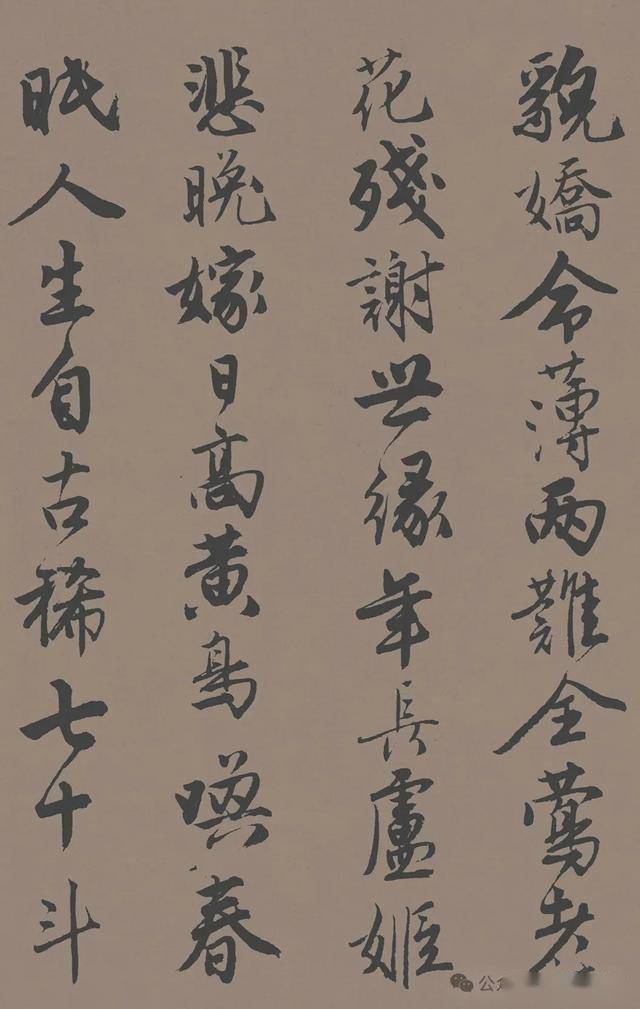 貌嬌命薄两難全鶯老
花殘謝世緣年長盧姬
悲晚嫁日高黄鳥喚春
眠人生自古稀七十斗
公